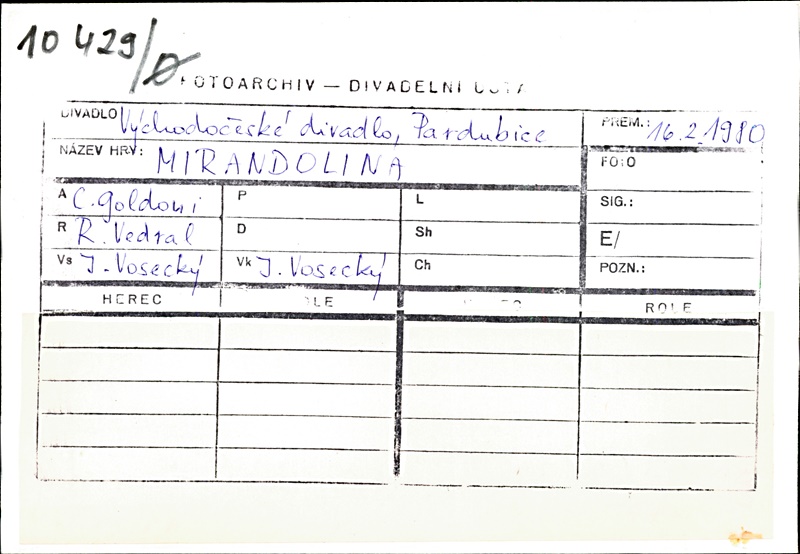 10 429/D
FOTOARCHIV — DIVADELNÍ
DIVADLO Východočeské divadlo, Pardubice PREM.: 16.2.1980
NÁZEV HRY: MIRANDOLINA FOTO
A C. Goldoni P L SIG.:
R R. Vedral D Sh E/
Vs J. Vosecký Vk J. Vosecký Ch POZN.:
HEREC ROLE